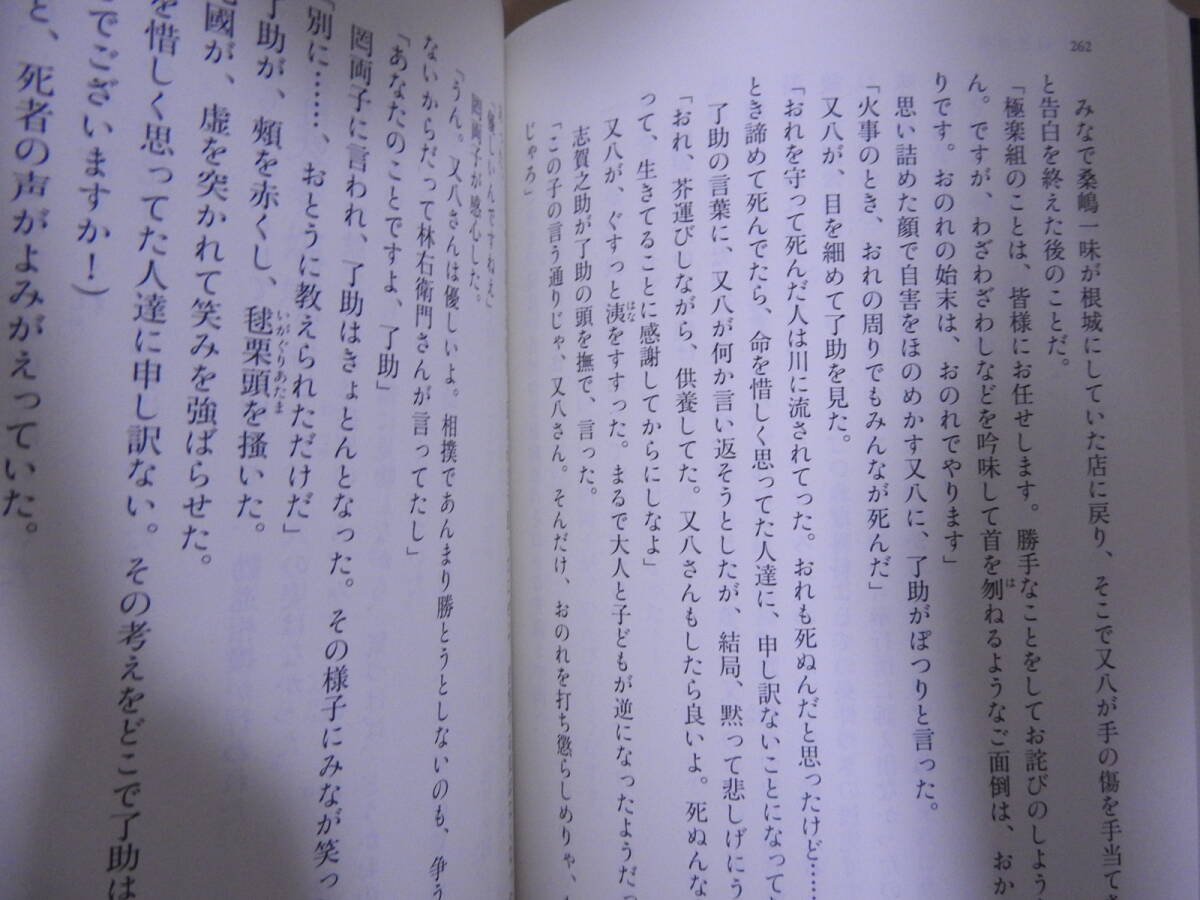 262
みなで桑嶋一味が根城にしていた店に戻り、そこで又八が手の傷を手当て
と告白を終えた後のことだ。
「極楽組のことは、皆様にお任せします。勝手なことをしてお詫びのしよう
ん。ですが、わざわざわしなどを吟味して首を刎ねるようなご面倒は、おか
は
りです。おのれの始末は、おのれでやります」
思い詰めた顔で自害をほのめかす又八に、了助がぽつりと言った。
「火事のとき、おれの周りでもみんなが死んだ」
又八が、目を細めて了助を見た。
「おれを守って死んだ人は川に流されてった。おれも死ぬんだと思ったけど……
とき諦めて死んでたら、命を惜しく思ってた人達に、申し訳ないことになって
了助の言葉に、又八が何か言い返そうとしたが、結局、黙って悲しげにう
「おれ、芥運びしながら、供養してた。又八さんもしたら良いよ。死ぬんな
って、生きてることに感謝してからにしなよ」
又八が、ぐすっと洟をすすった。まるで大人と子どもが逆になったようだっ
はな
志賀之助が了助の頭を撫で、言った。
「この子の言う通りじゃ、又八さん。そんだけ、おのれを打ち懲らしめりゃ、
じゃろ」
「優しいんですねえ」
罔両子が感心した。
「うん。又八さんは優しいよ。相撲であんまり勝とうとしないのも、争う
ないからだって林右衛門さんが言ってたし」
「あなたのことですよ、了助」
罔両子に言われ、了助はきょとんとなった。その様子にみなが笑っ
「別に……、おとうに教えられただけだ」
了助が、頰を赤くし、毬栗頭を掻いた。
いがぐりあたま
國が、虚を突かれて笑みを強ばらせた。
を惜しく思ってた人達に申し訳ない。その考えをどこで了助は
でございますか！）
と、死者の声がよみがえっていた。